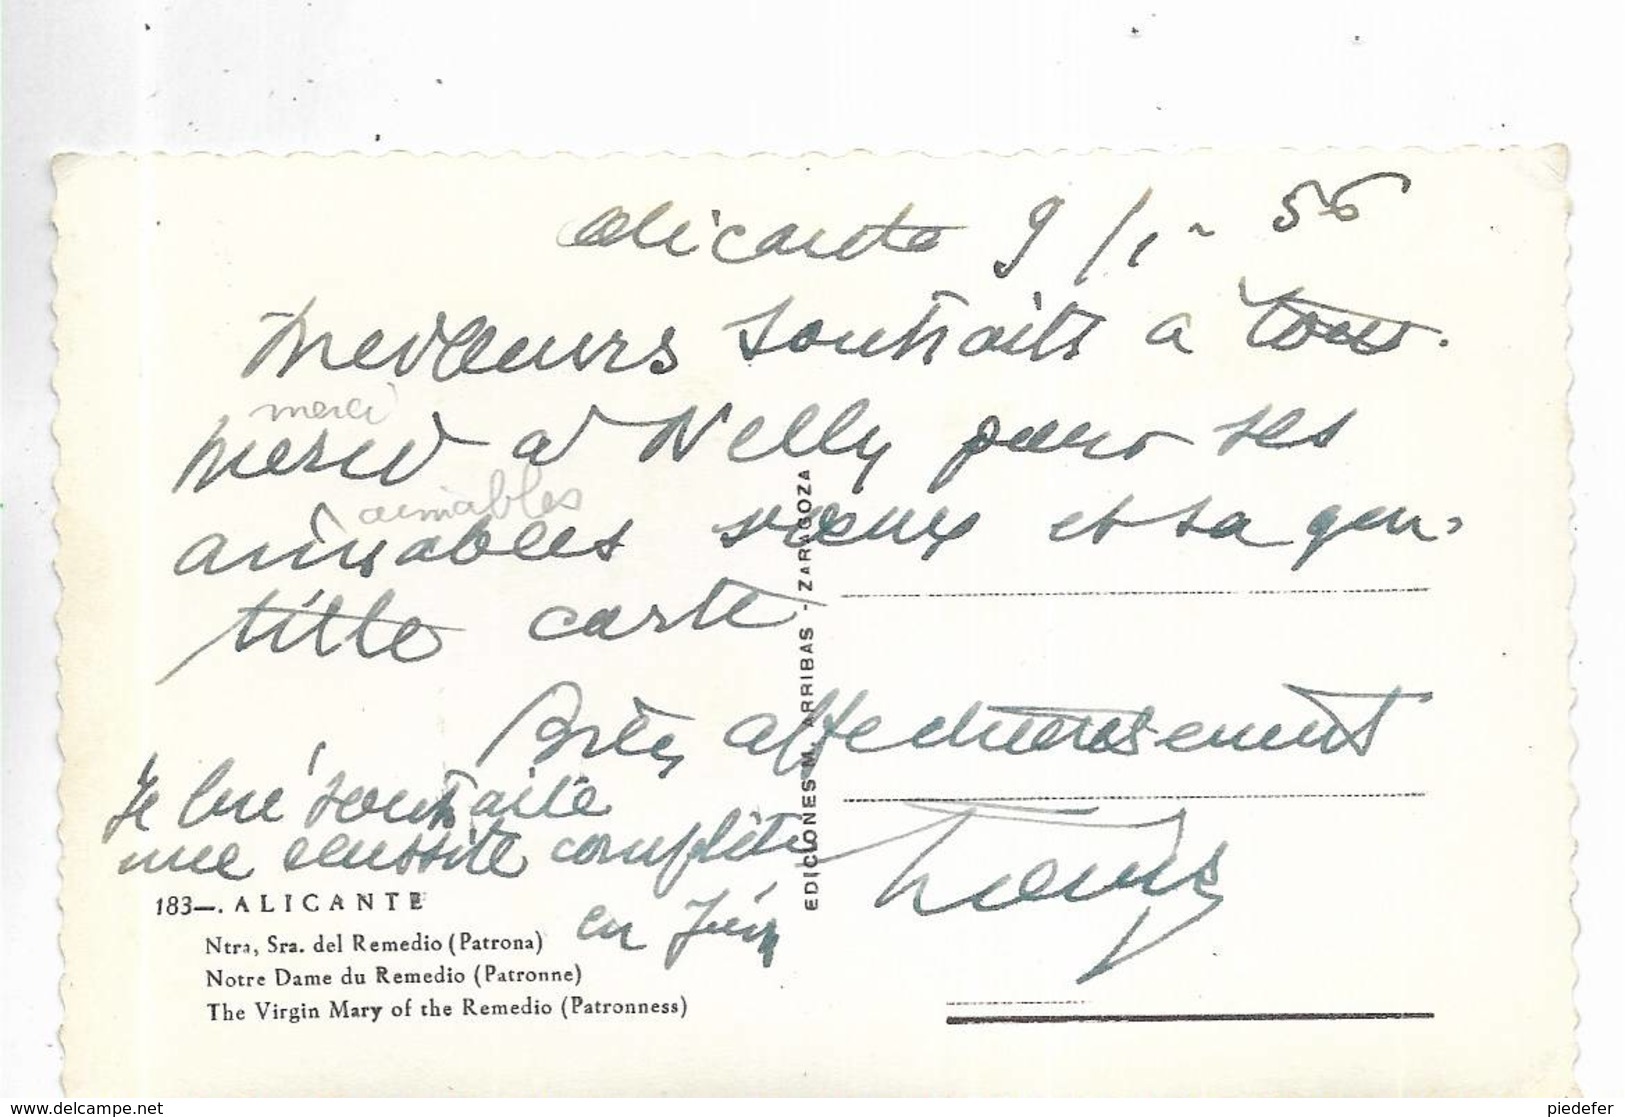 Alicante 9/1 - 56
Meilleurs souhaits a tous.
merci
Merci a Nelly pour ses
aimables
aimables vœux et sa gen-
tille carte
Bien affectueusement
Je lui souhaite
une réussite complète
en Juin
183—. ALICANTE
Ntra, Sra. del Remedio (Patrona)
Notre Dame du Remedio (Patronne)
The Virgin Mary of the Remedio (Patronness)
EDICIONES M. ARRIBAS - ZARAGOZA
www.delcampe.net
piedefer